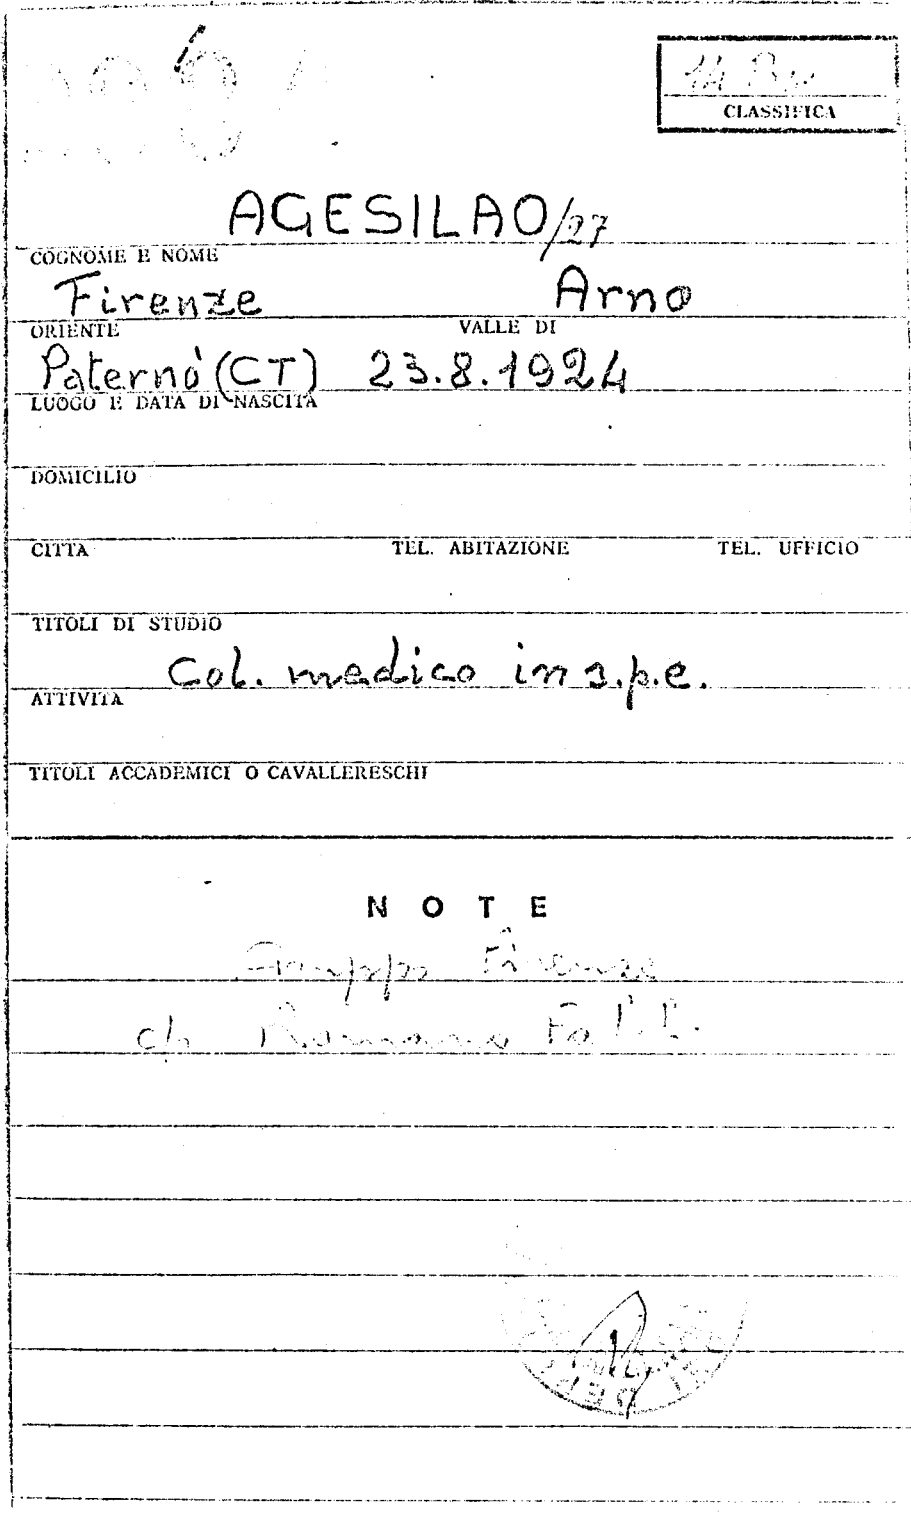 CLASSIFICA
AGESILAO/27
COGNOME E NOME
Firenze Arno
ORIENTE VALLE DI
Paternò (CT) 23.8.1924
LUOGO E DATA DI NASCITA
DOMICILIO
CITTA TEL. ABITAZIONE TEL. UFFICIO
TITOLI DI STUDIO
Col. medico in s.p.e.
ATTIVITA
TITOLI ACCADEMICI O CAVALLERESCHI
NOTE
Gruppo Firenze
c/o Romano